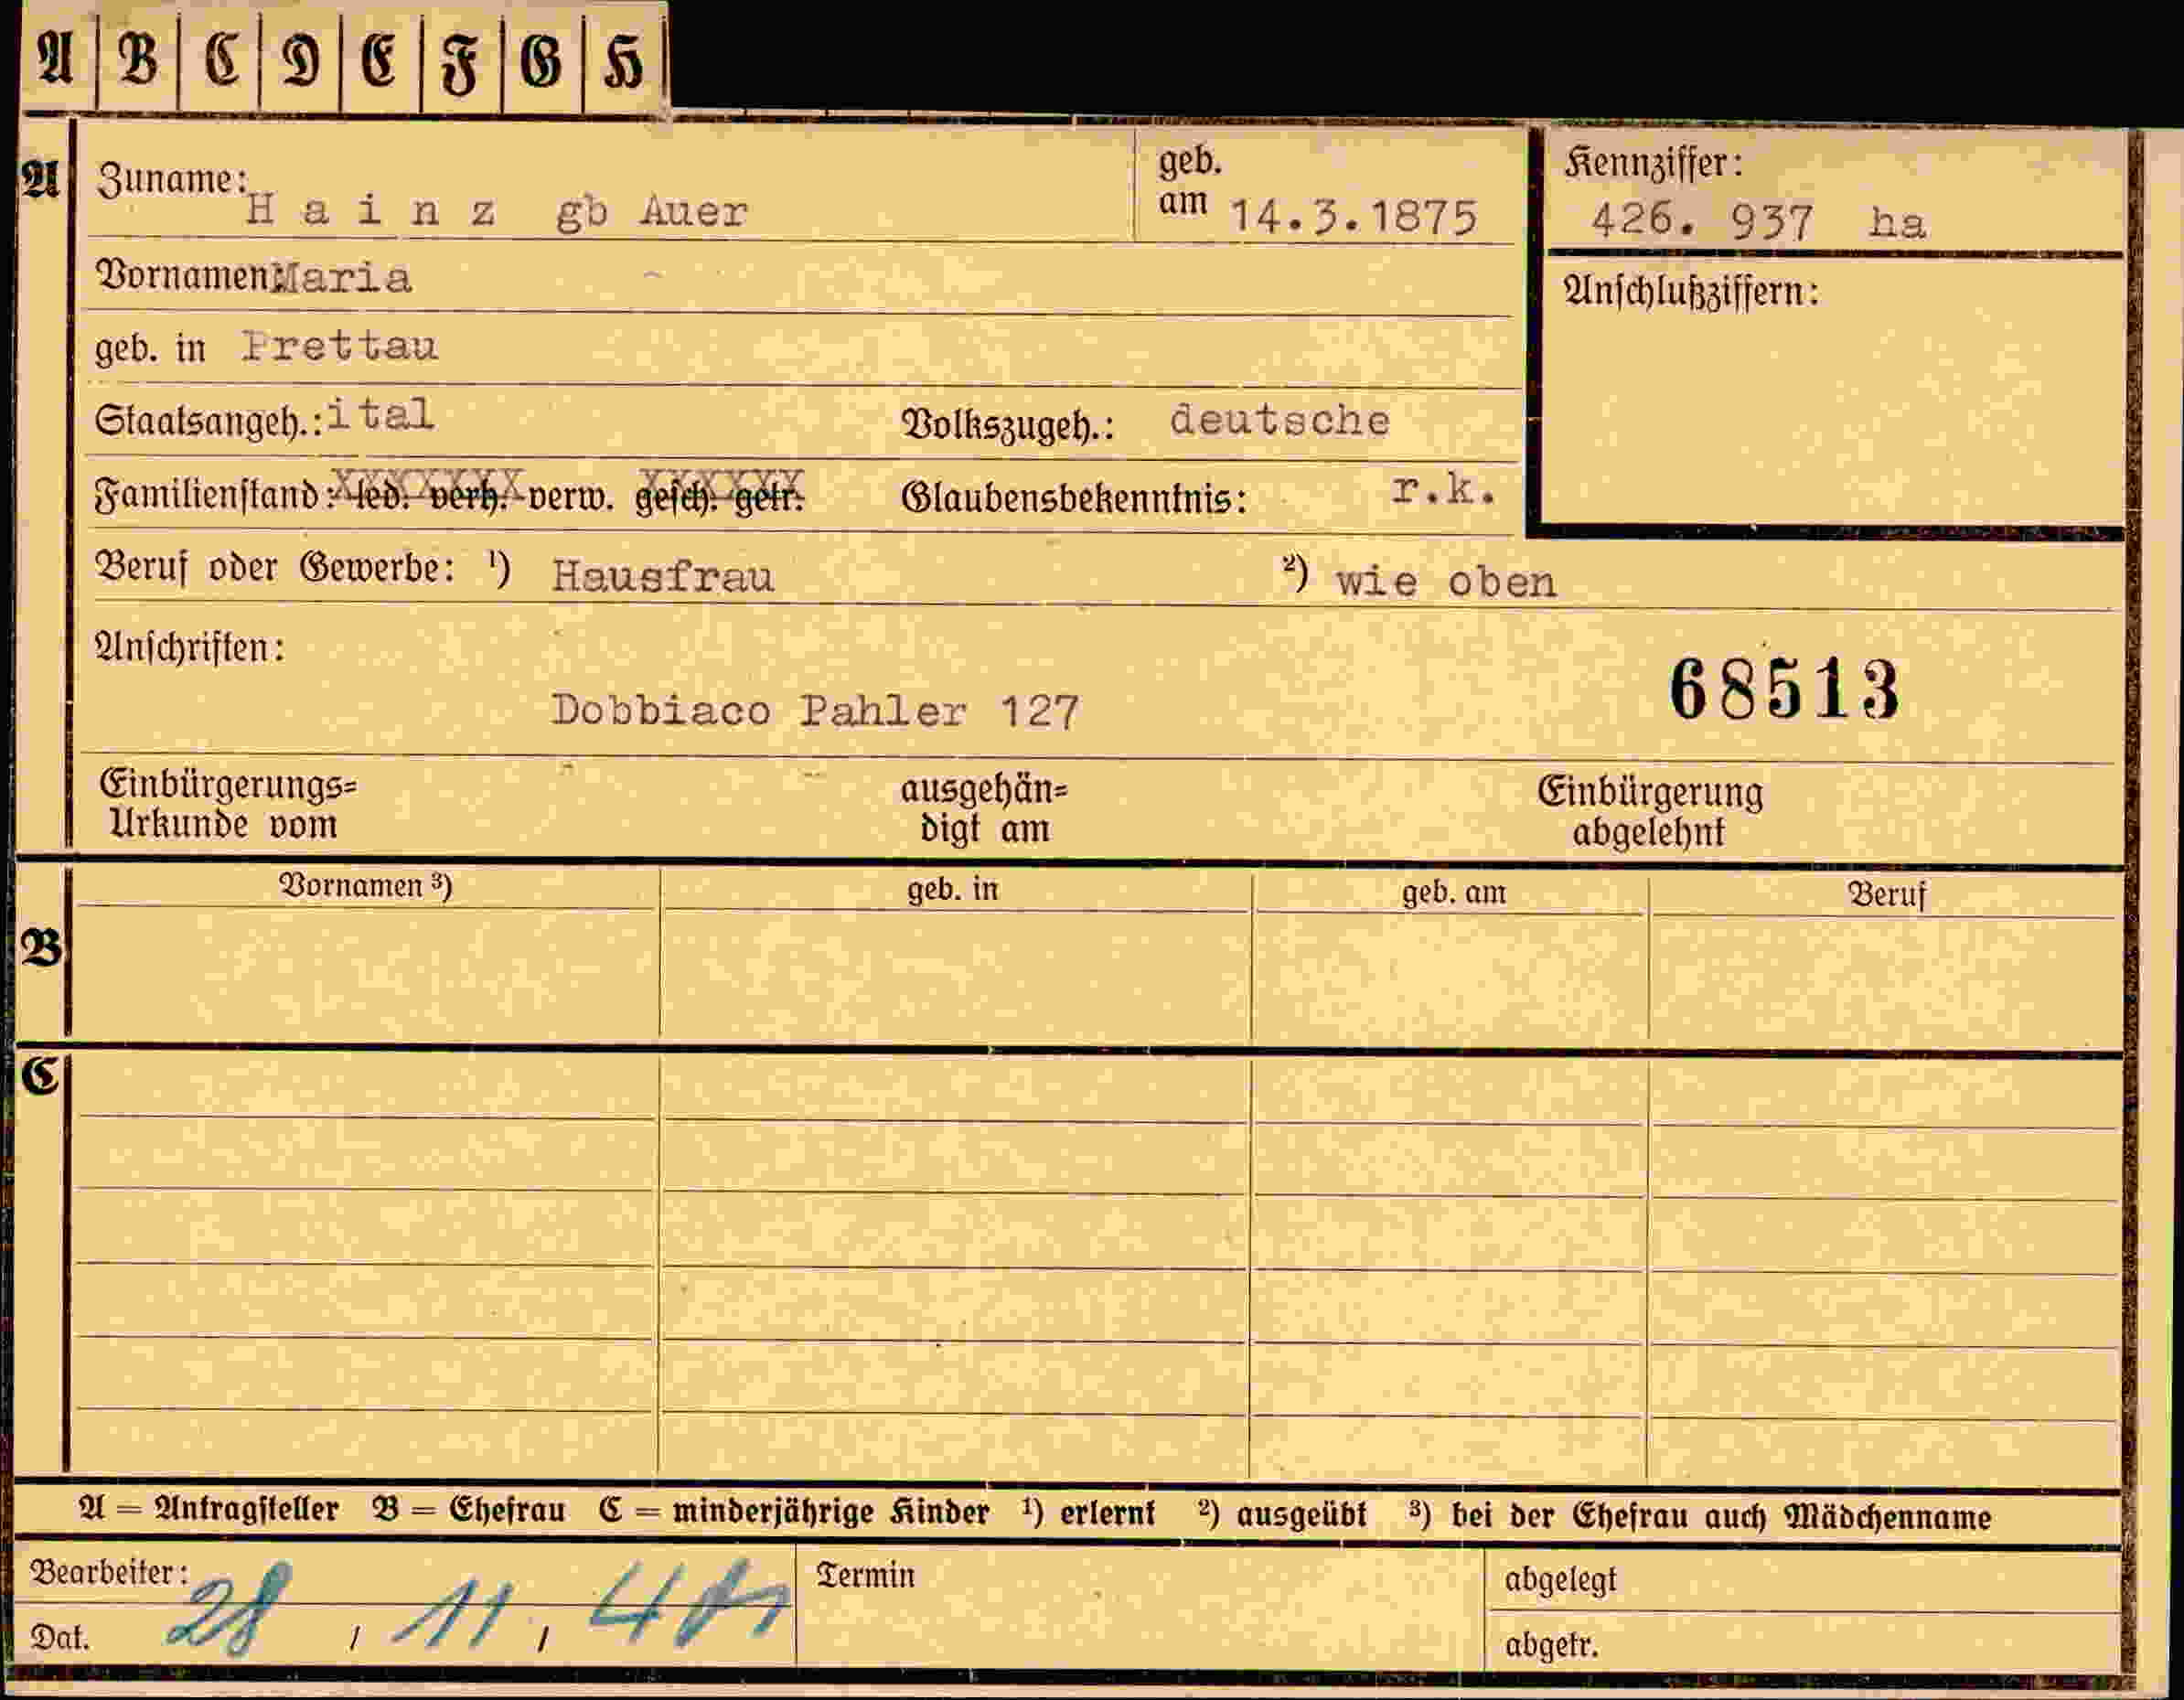 A B C D E F G H
A Zuname: Hainz gb Auer geb. am 14.3.1875 Kennziffer: 426. 937 ha
Vornamen Maria Anschlußziffern:
geb. in Prettau
Staatsangeh.: ital Volkszugeh.: deutsche
Familienstand: led. verh. verw. gesch. getr. Glaubensbekenntnis: r.k.
Beruf oder Gewerbe: ¹) Hausfrau ²) wie oben
Anschriften:
68513
Dobbiaco Pahler 127
Einbürgerungs= ausgehän= Einbürgerung
Urkunde vom digt am abgelehnt
Vornamen ³) geb. in geb. am Beruf
B
C
A = Antragsteller B = Ehefrau C = minderjährige Kinder ¹) erlernt ²) ausgeübt ³) bei der Ehefrau auch Mädchenname
Bearbeiter: Termin abgelegt
Dat. 28 / 11 / abgetr.